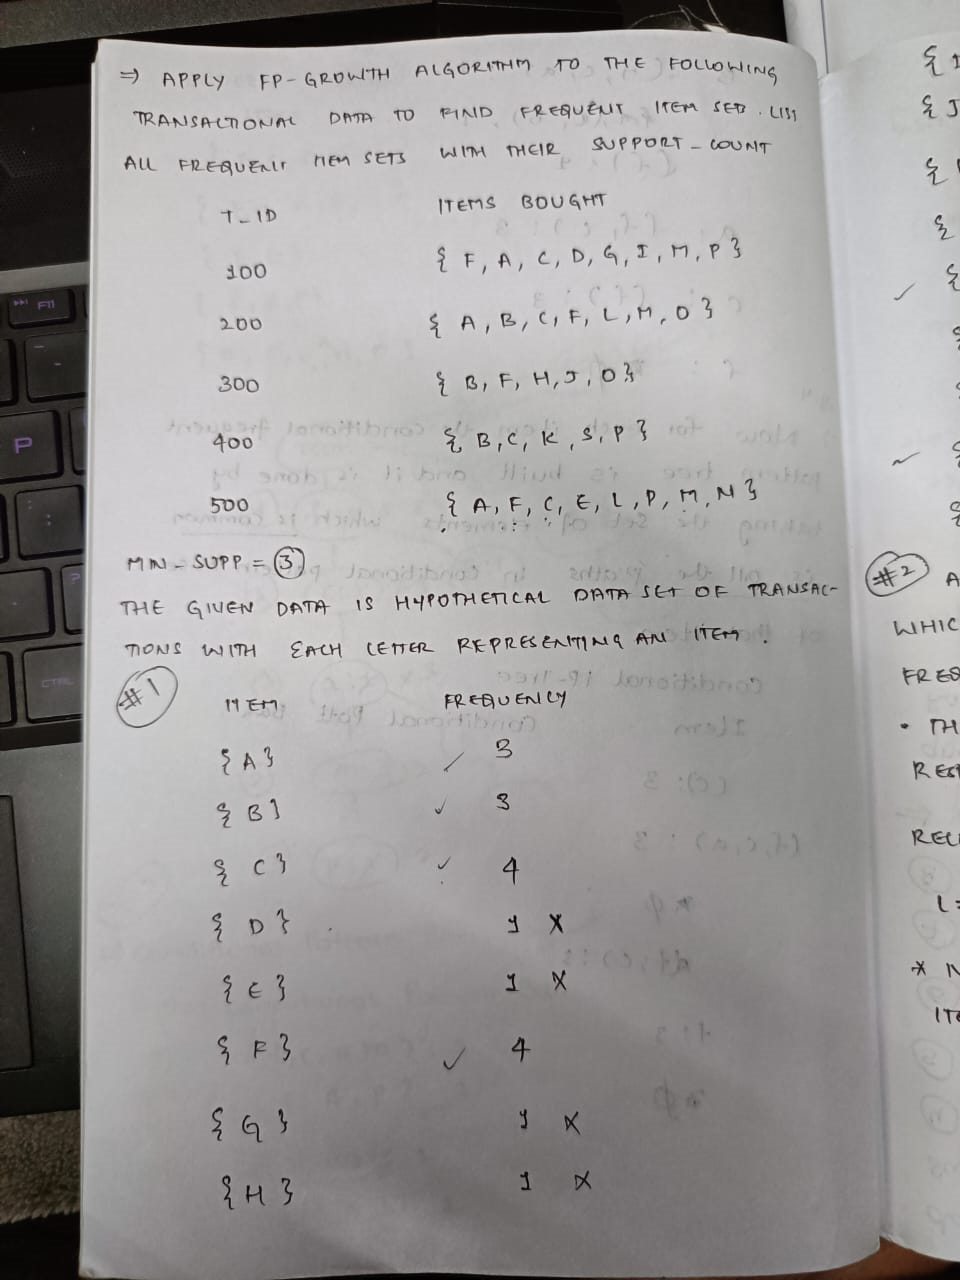 => APPLY FP-GROWTH ALGORITHM TO THE FOLLOWING
TRANSACTIONAL DATA TO FIND FREQUENT ITEM SETS. LIST
ALL FREQUENT ITEM SETS WITH THEIR SUPPORT-COUNT
T_ID ITEMS BOUGHT
100 { F, A, C, D, G, I, M, P }
200 { A, B, C, F, L, M, O }
300 { B, F, H, J, O }
400 { B, C, K, S, P }
500 { A, F, C, E, L, P, M, N }
MIN-SUPP = 3
THE GIVEN DATA IS HYPOTHETICAL DATA SET OF TRANSAC-
TIONS WITH EACH LETTER REPRESENTING AN ITEM.
#1
ITEM FREQUENCY
{ A } ✓ 3
{ B } ✓ 3
{ C } ✓ 4
{ D } 1 X
{ E } 1 X
{ F } ✓ 4
{ G } 1 X
{ H } 1 X
{
{ J
{
{
✓ {
{
#2 A
WHIC
• TH
L =
* N
P
F11
?
CTRL